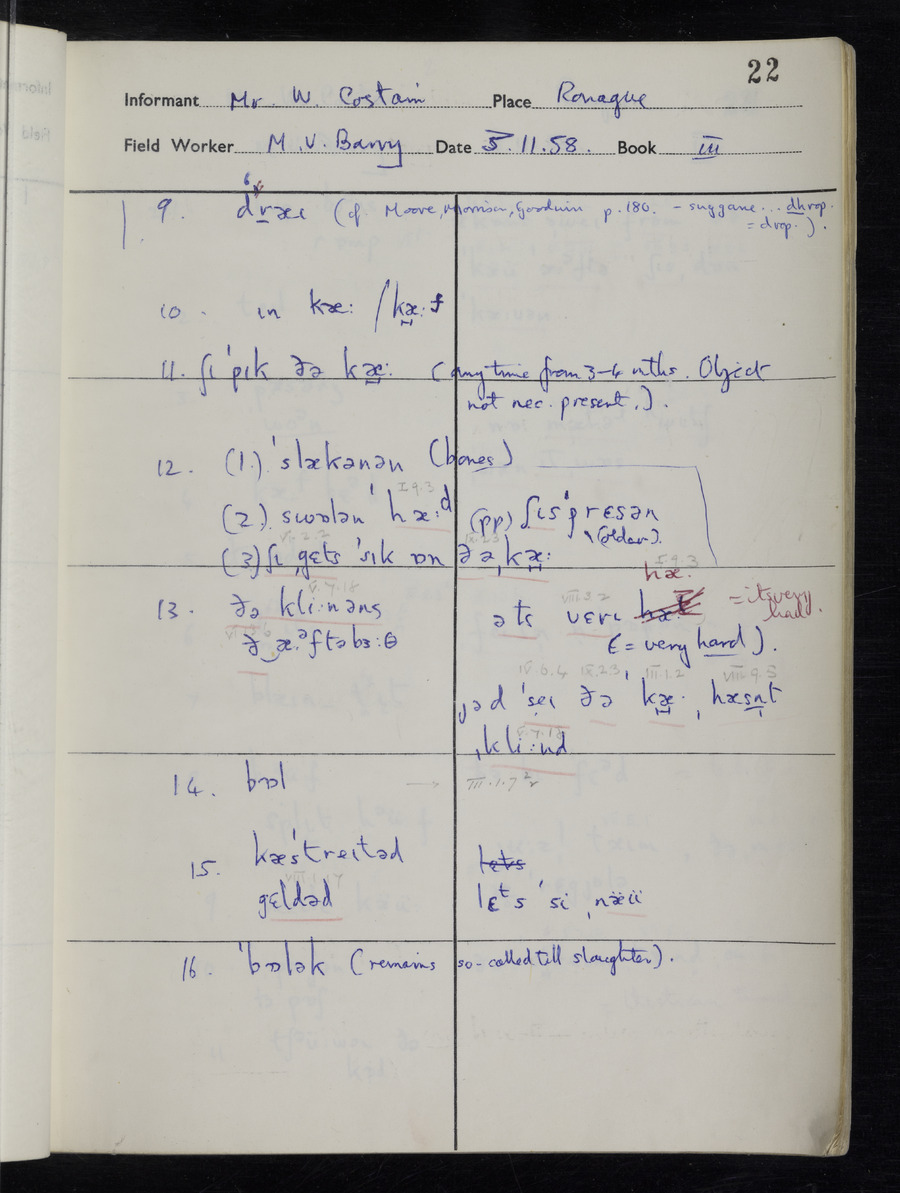 22
Informant Mr. W. Costain Place Ronague
Field Worker M.V. Barry Date 5.11.58. Book III
9. dræɪ (cf Moore, Morrison, Goodwin p.180. – suggane... dhrop.
= drop.).
10. ɪn kæ: / kæ:f
11. ʃɪ ˈpɪk ðə kæ: (any time from 3–4 mths. Object
not nec. present.).
12. (1.) ˈslækənən (bones)
I.9.3
(2.) swɒlən ˈhæ:d (pp) ʃɪsˈprɛsən
(older).
(3) ʃɪ ˌgɛts ˈsɪk ɒn ðə ˌkæ:
I.9.3
hæ.
V.7.18
13. ðə kli:nəns əts vɛrɪ = its very
hard.
ðˌæ.əftəbɜ:θ (= very hard).
IV.6.4 IX.2.3 III.1.2 VIII.9.5
ˌəd ˈseɪ ðə ˈkæ. ˌhæsnt
V.7.18
ˌkli:nd
14. bɒl → III.1.7
15. kæˈstreɪtəd lɛts
gɛldəd lɛts ˈsi ˌnäü
16. ˈbɒlək (remains so-called till slaughter).